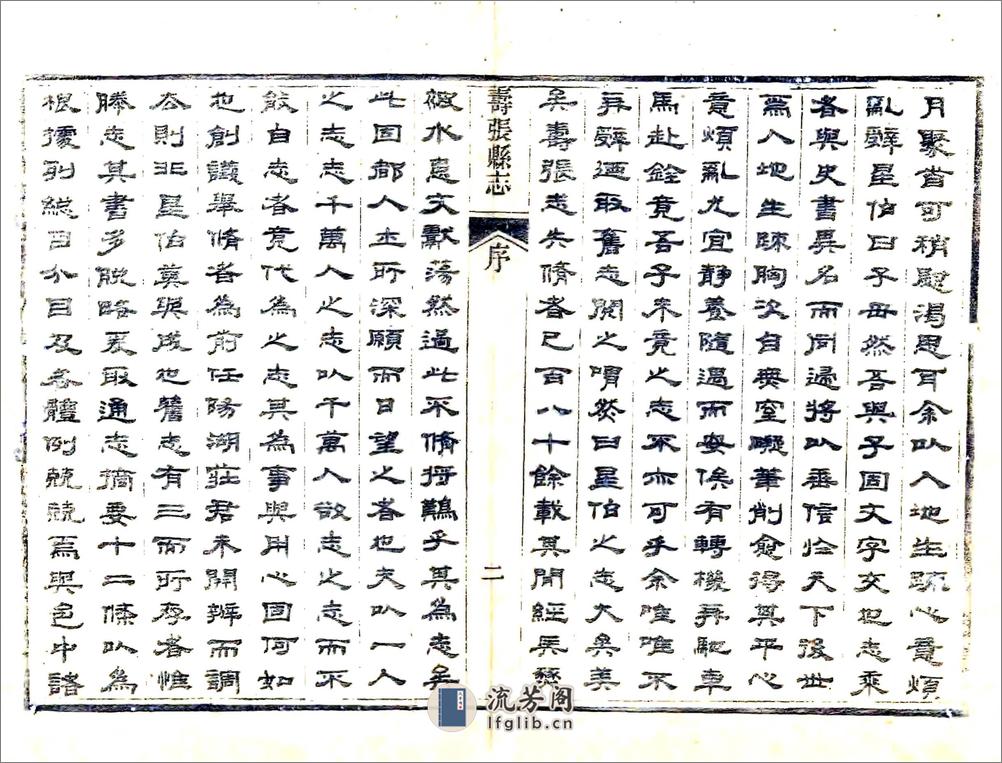 月聚首可稍慰渴思耳余以人地生疏心意煩
亂辭星伯曰子毋然吾與子固文字交也志乘
者與史書異名而同歸將以垂信於天下後世
為人地生疏胸次自無窒礙筆削愈得其平心
意煩亂尤宜靜養隨遇而安俟有轉機再馳車
馬赴銓竟吾子未竟之志不亦可乎余唯唯不
再辭迺取舊志閱之喟然曰星伯之志大矣美
矣壽張志失脩者已百八十餘載其間經兵燹
壽張縣志 序 二
被水患文獻蕩然過此不脩將難乎其為志矣
此固都人士所深願而日望之者也夫以一人
之志志千萬人之志以千萬人欲志之志而不
能自志者竟代為之志其為事與用心固何如
也創議舉脩者為前任陽湖莊君未開辦而調
去則非星伯莫與成也舊志有三而所存者惟
滕志其書多脫略爰取通志摘要十二條以為
根據列總目分目及各體例兢兢焉與邑中諸
流芳阁
lfglib.cn